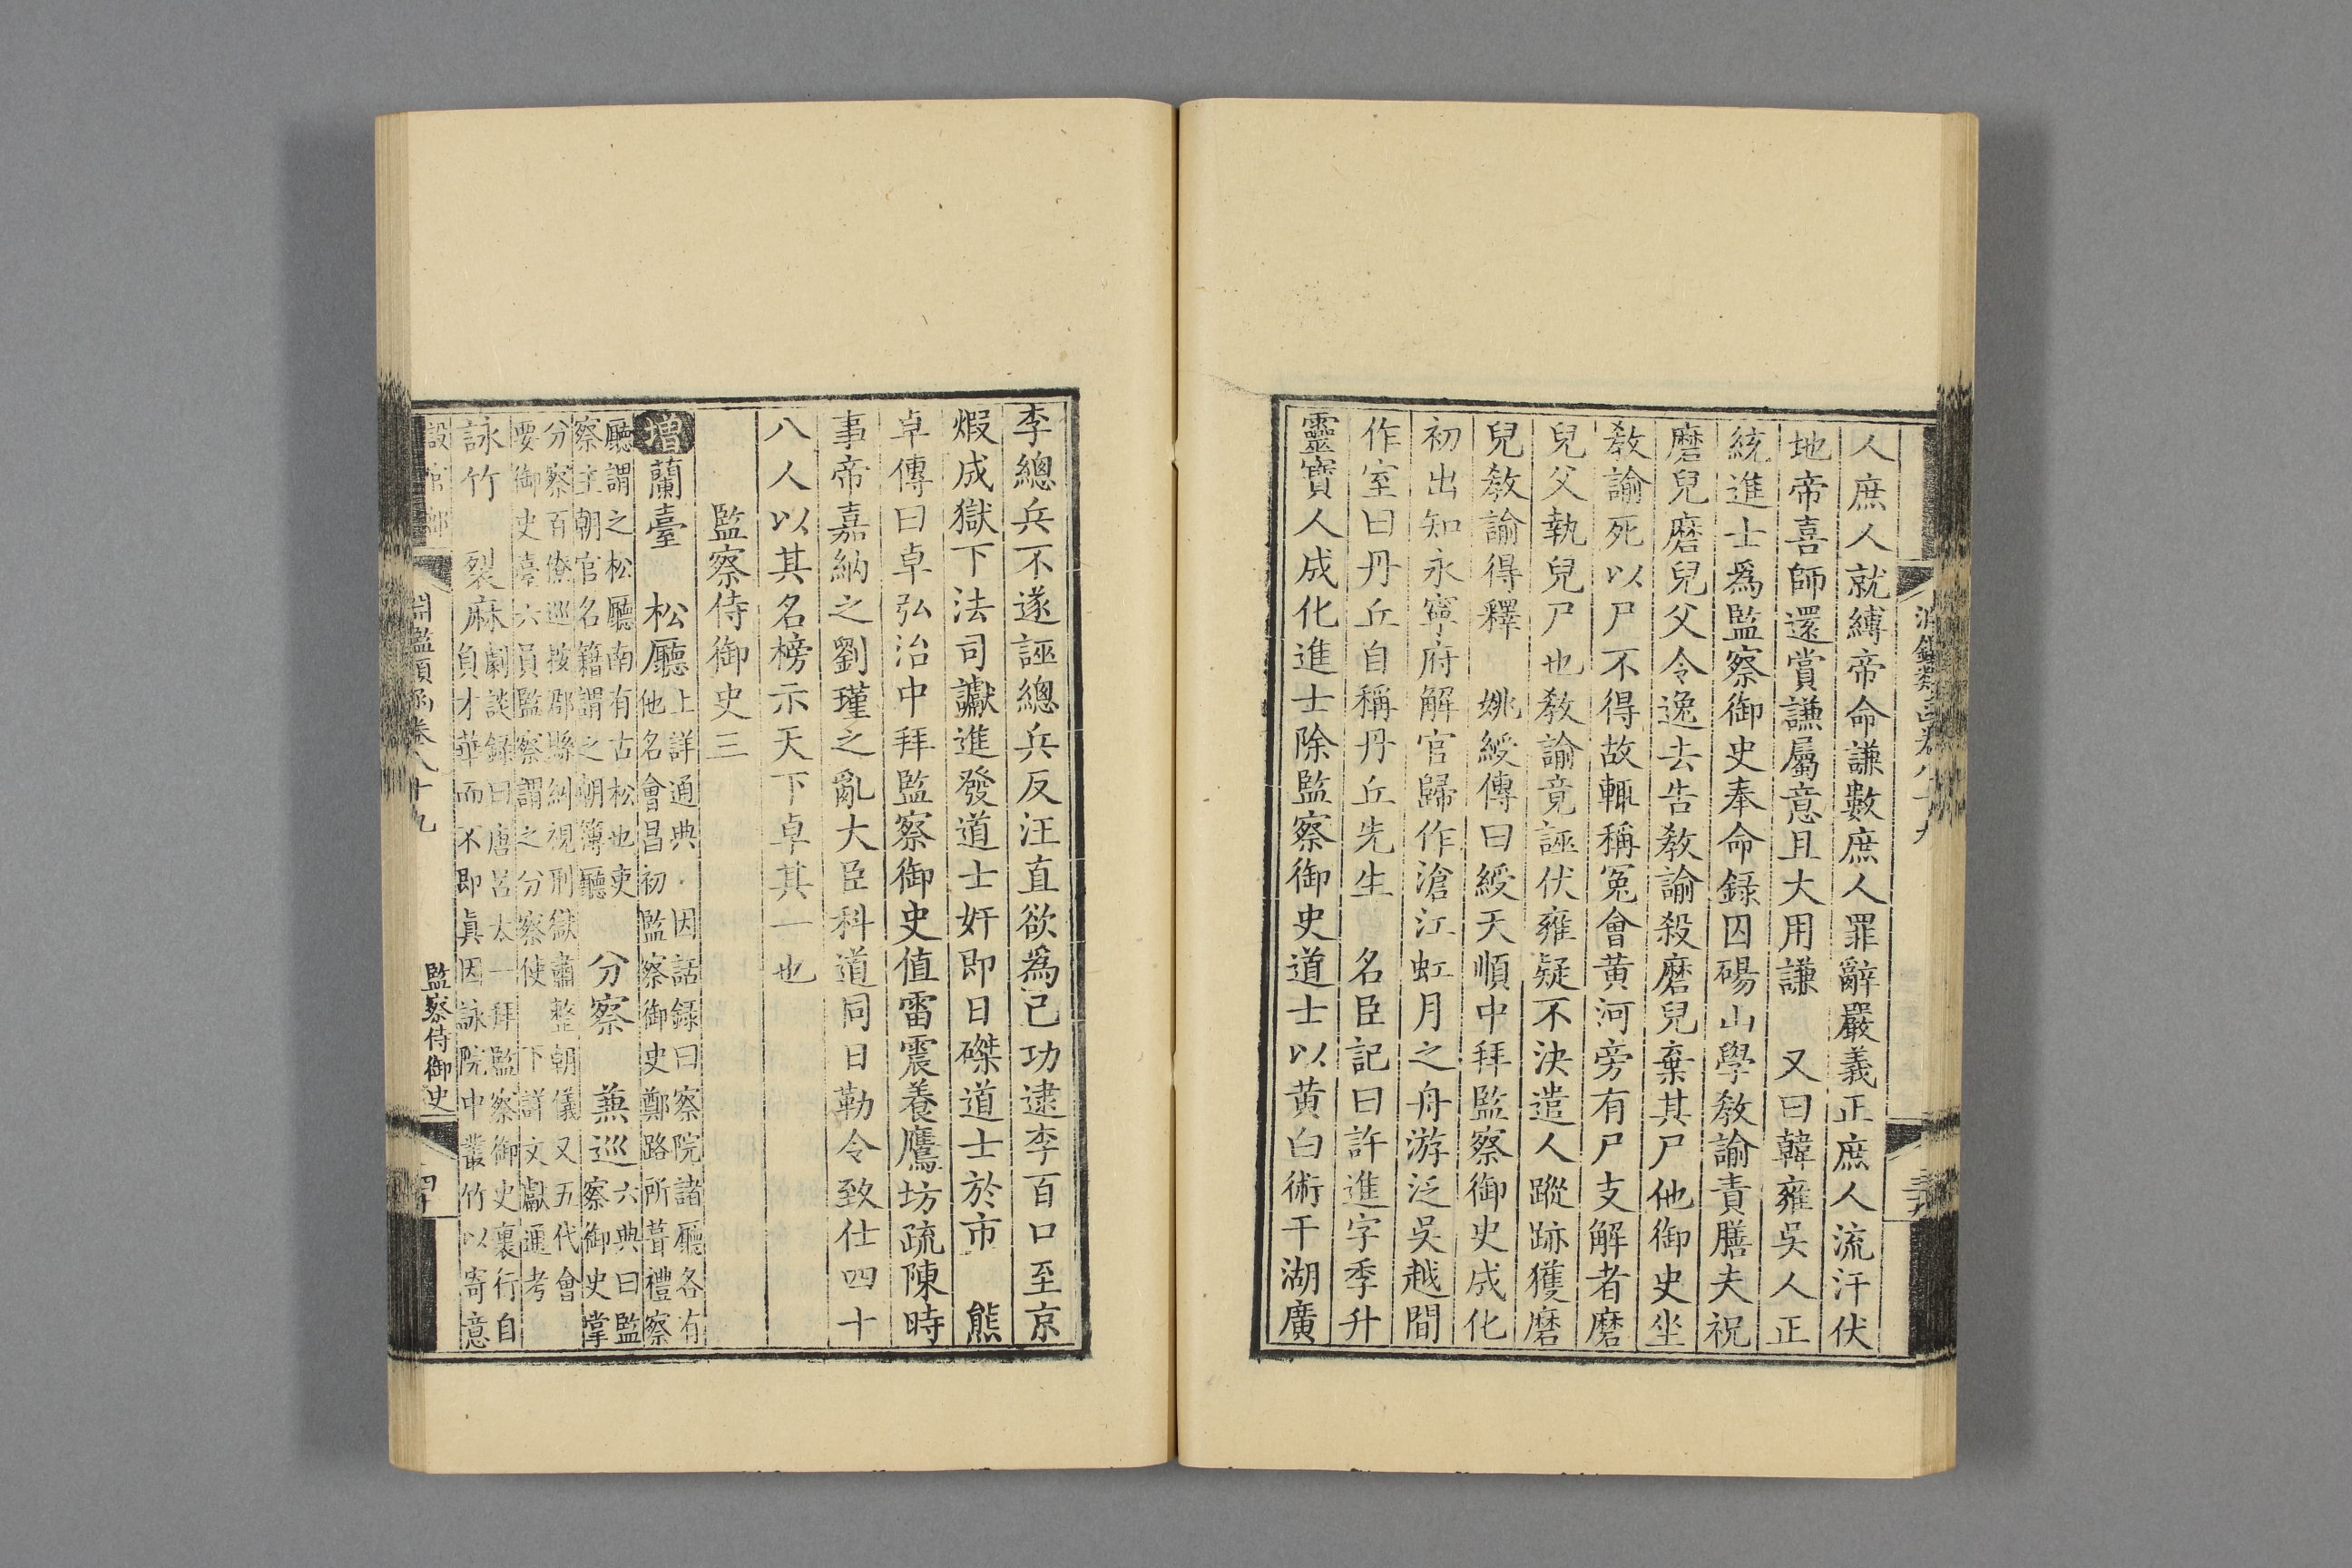 人庶人就縛帝命謙數庶人罪辭嚴義正庶人流汗伏
地帝喜師還賞謙屬意且大用謙　又曰韓雍吳人正
統進士爲監察御史奉命錄囚碭山學教諭責膳夫祝
磨兒磨兒父令逸去告教諭殺磨兒棄其尸他御史坐
教諭死以尸不得故輒稱冤會黄河旁有尸支解者磨
兒父執兒尸也教諭竟誣伏雍疑不決遣人蹤跡獲磨
兒教諭得釋　姚綬傳曰綬天順中拜監察御史成化
初出知永寧府解官歸作滄江虹月之舟游泛吳越間
作室曰丹丘自稱丹丘先生　名臣記曰許進字季升
靈寶人成化進士除監察御史道士以黄白術干湖廣
李總兵不遂誣總兵反汪直欲爲己功逮李百口至京
煆成獄下法司讞進發道士奸即日磔道士於市　熊
卓傳曰卓弘治中拜監察御史值雷震養鷹坊疏陳時
事帝嘉納之劉瑾之亂大臣科道同日勒令致仕四十
八人以其名榜示天下卓其一也
監察侍御史三
增蘭臺　松廳上詳通典　因話録曰察院諸廳各有
他名會昌初監察御史鄭路所葺禮察
廳謂之松廳南有古松也吏
察主朝官名籍謂之朝簿廳　分察　兼巡六典曰監
察御史掌
分察百僚巡按郡縣糾視刑獄肅整朝儀又五代會
要御史臺六員監察謂之分察使　下詳文獻通考
詠竹　裂麻劇談録曰唐呂太一拜監察御史裏行自
負才華而不即真因詠院中叢竹以寄意
設官部
淵鑑類函卷八十九
監察侍御史